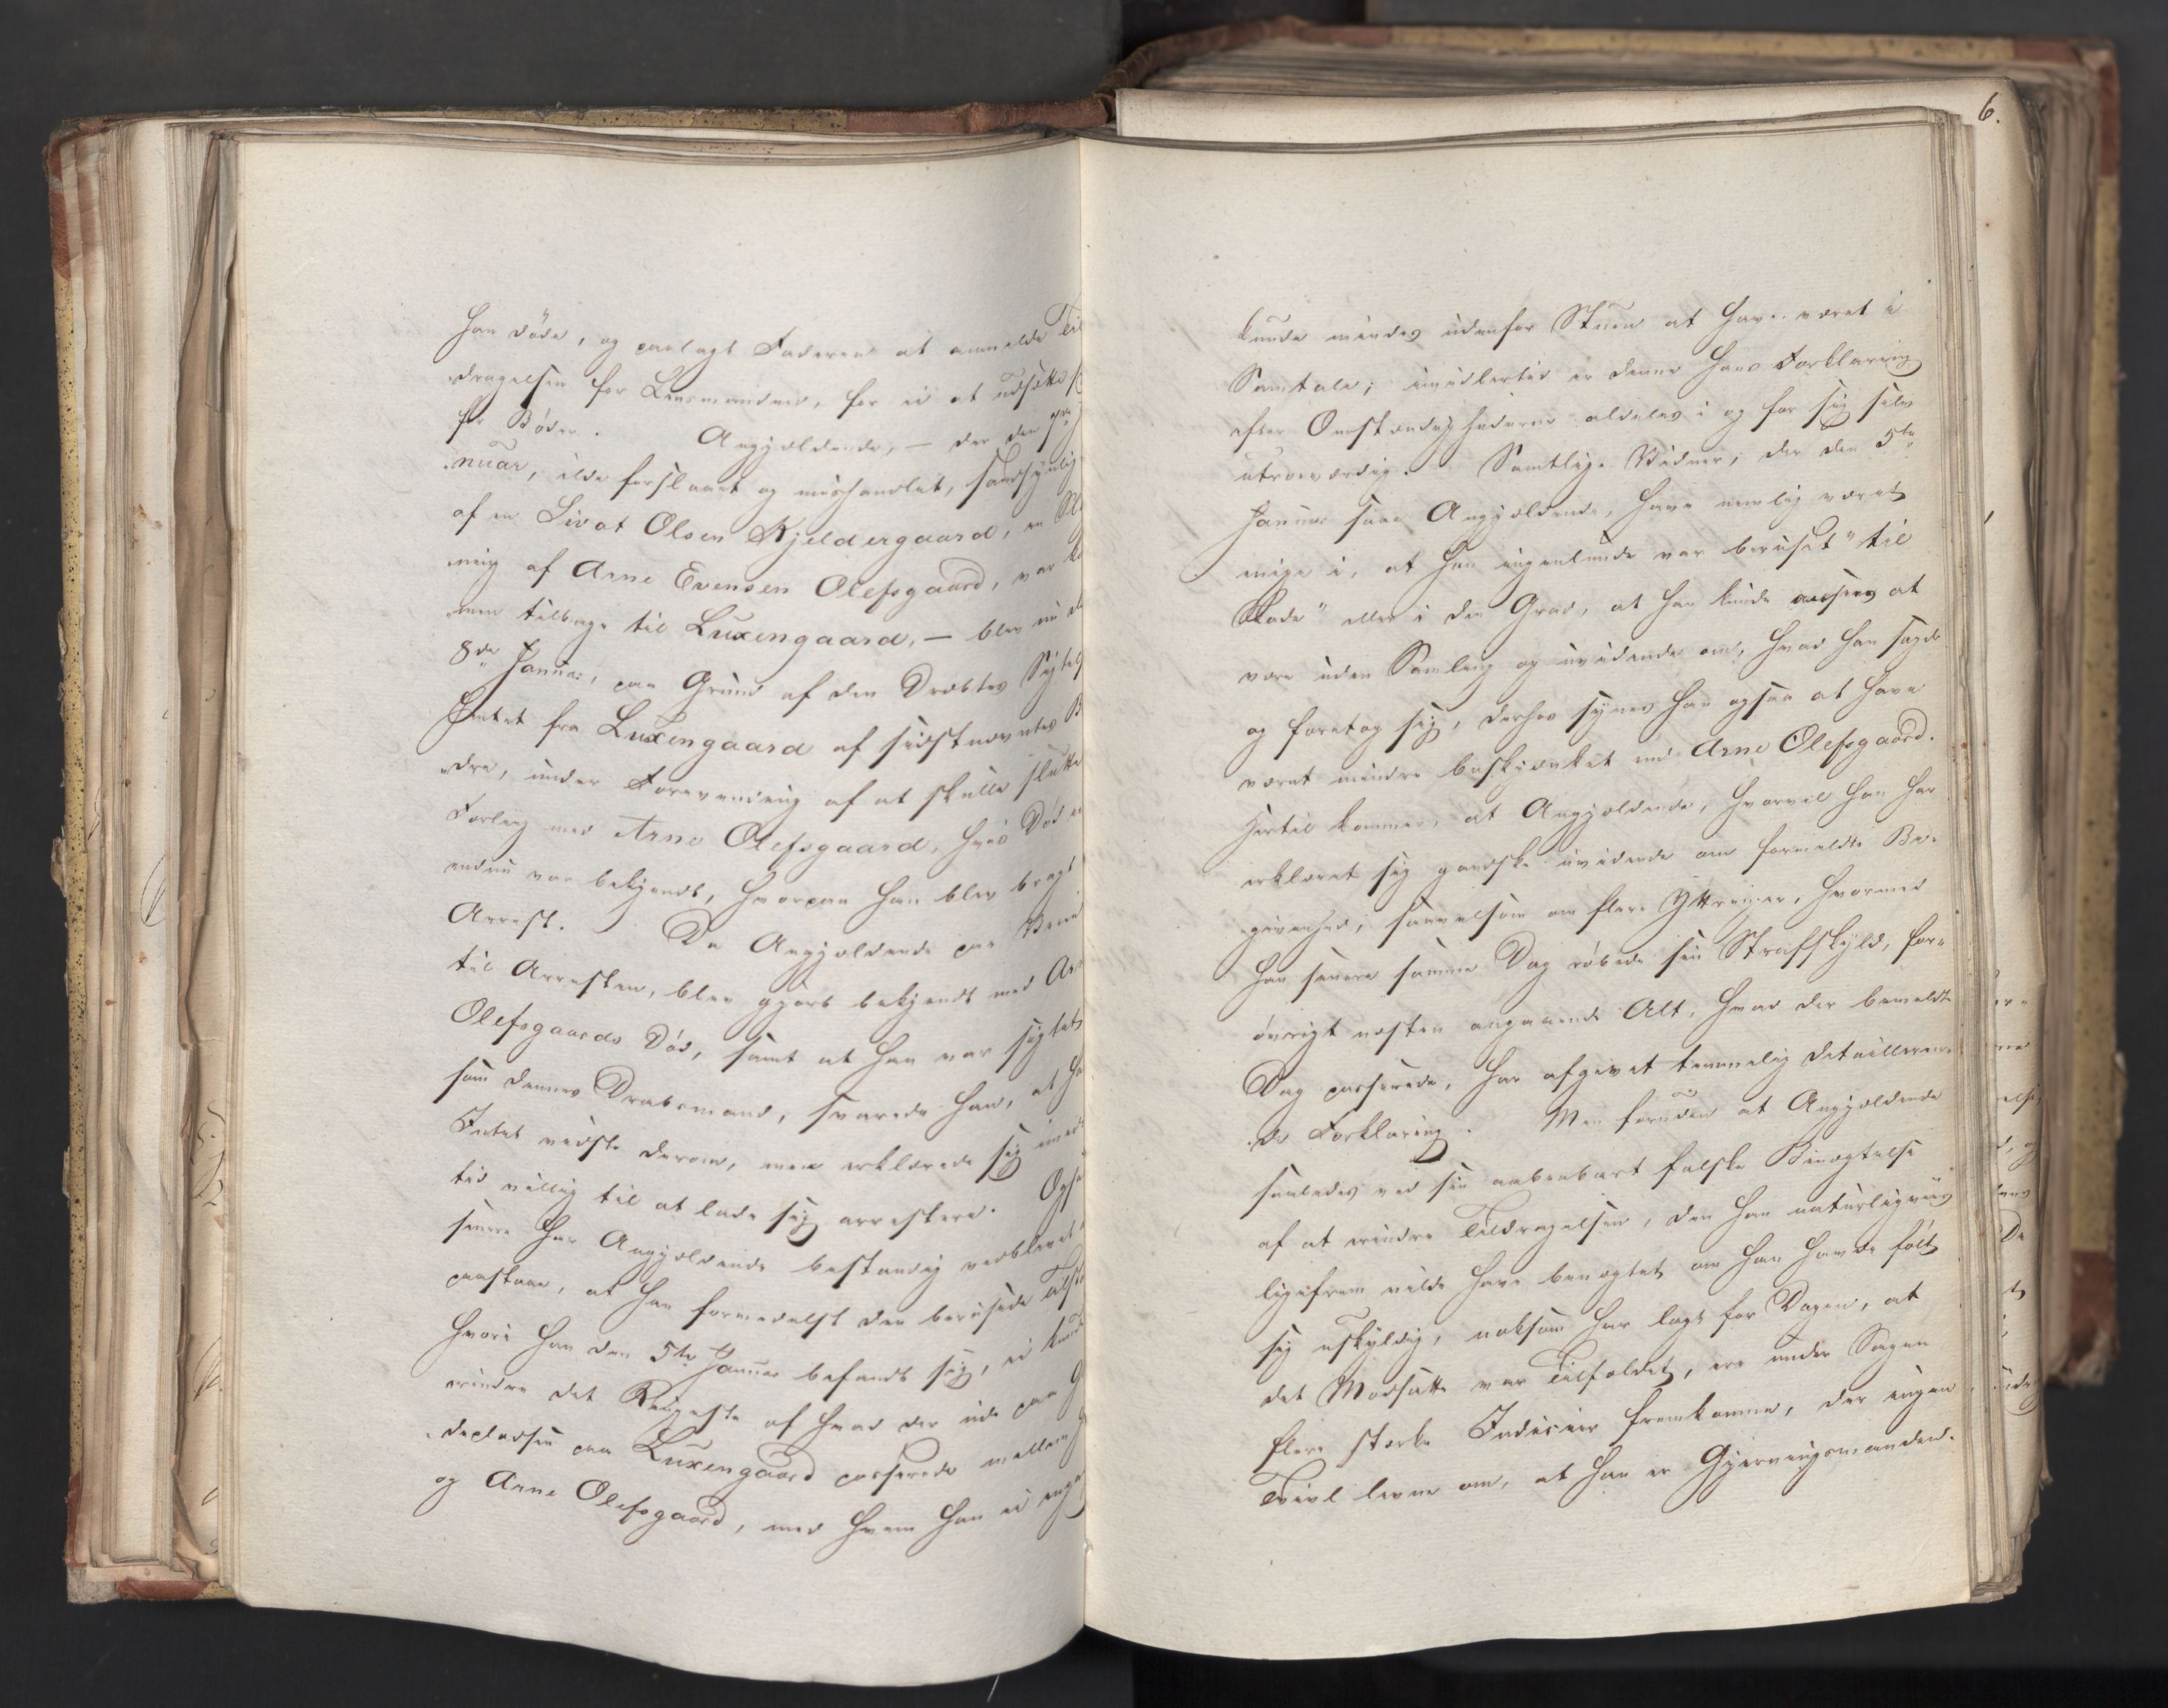 han døde, og paalagt Faderen at anmelde Til
dragelsen for Lensmanden, for ei at udsætte s
for Bøder. Angjældende, — der den 7de J
nuar, ilde forslaaet og mishandlet, sandsynlig
af en Sivat Olsen Kjeldergaard, en
ning af Arne Evensen Olefsgaard, var
men tilbage til Luxengaard, — blev nu
8de Januar, paa Grund af den Dræbtes Sigtel
hentet fra Luxengaard af sidstnævntes B
dre, under Foregivening af at skulle slutte
Forlig med Arne Olefsgaard, hvis Død ei
endnu var bekjendt, hvorpaa han blev bragt
Arrest. Da Angjældende paa Veien
til Arresten, blev gjort bekjendt med Ar
Olefsgaards Død, samt at han var sigtet
som dennes Drabsmand, svarede han, at ha
Intet vidste derom, men erklærede sig imid
tid villig til at lade sig arrestere. Ogsa
senere har Angjældende bestandig vedblevet
paastaae, at han formedelst den berusede Tilst
hvori han den 5te Januar befandt sig, ei kund
erindre det Ringeste af hvad der ude paa G
depladsen paa Luxengaard passerede mellem
og Arne Olefsgaard, med hvem han ei enga
6.
kunde mindes udenfor Stuen at have været i
Samtale; imidlertid er denne hans Forklaring
efter Omstændighederne aldeles i og for sig selv
utroværdig. Samtlige Vidner, der den 5te
Januar saae Angjældende, have nemlig været
enige i, at han ingenlunde var beruset "til
Skade" eller i den Grad, at han kunde ansees at
være uden Samling og uvidende om, hvad han sagde
og foretog sig, derhos synes han ogsaa at have
været mindre beskjænket end Arne Olefsgaard.
Hertil kommer, at Angjældende, hvorvel han har
erklæret sig gandske uvidende om formeldte Be-
givenhed, saavelsom om flere Yttringer, hvormed
han senere samme Dag røbede sin Strafskyld, for-
øvrigt næsten angaaende Alt, hvad der bemeldte
Dag passerede, har afgivet temmelig detailleren-
de Forklaring. Men foruden at Angjældende
saaledes ved sin aabenbart falske Benægtelse
af at erindre Tildragelsen, den han naturligviis
ligefrem vilde have benægtet om han havde følt
sig uskyldig, noksom har lagt for Dagen, at
det Modsatte var Tilfældet, ere under Sagen
flere stærke Indicier fremkomne, der ingen
Tvivl levne om, at han er Gjerningsmanden.